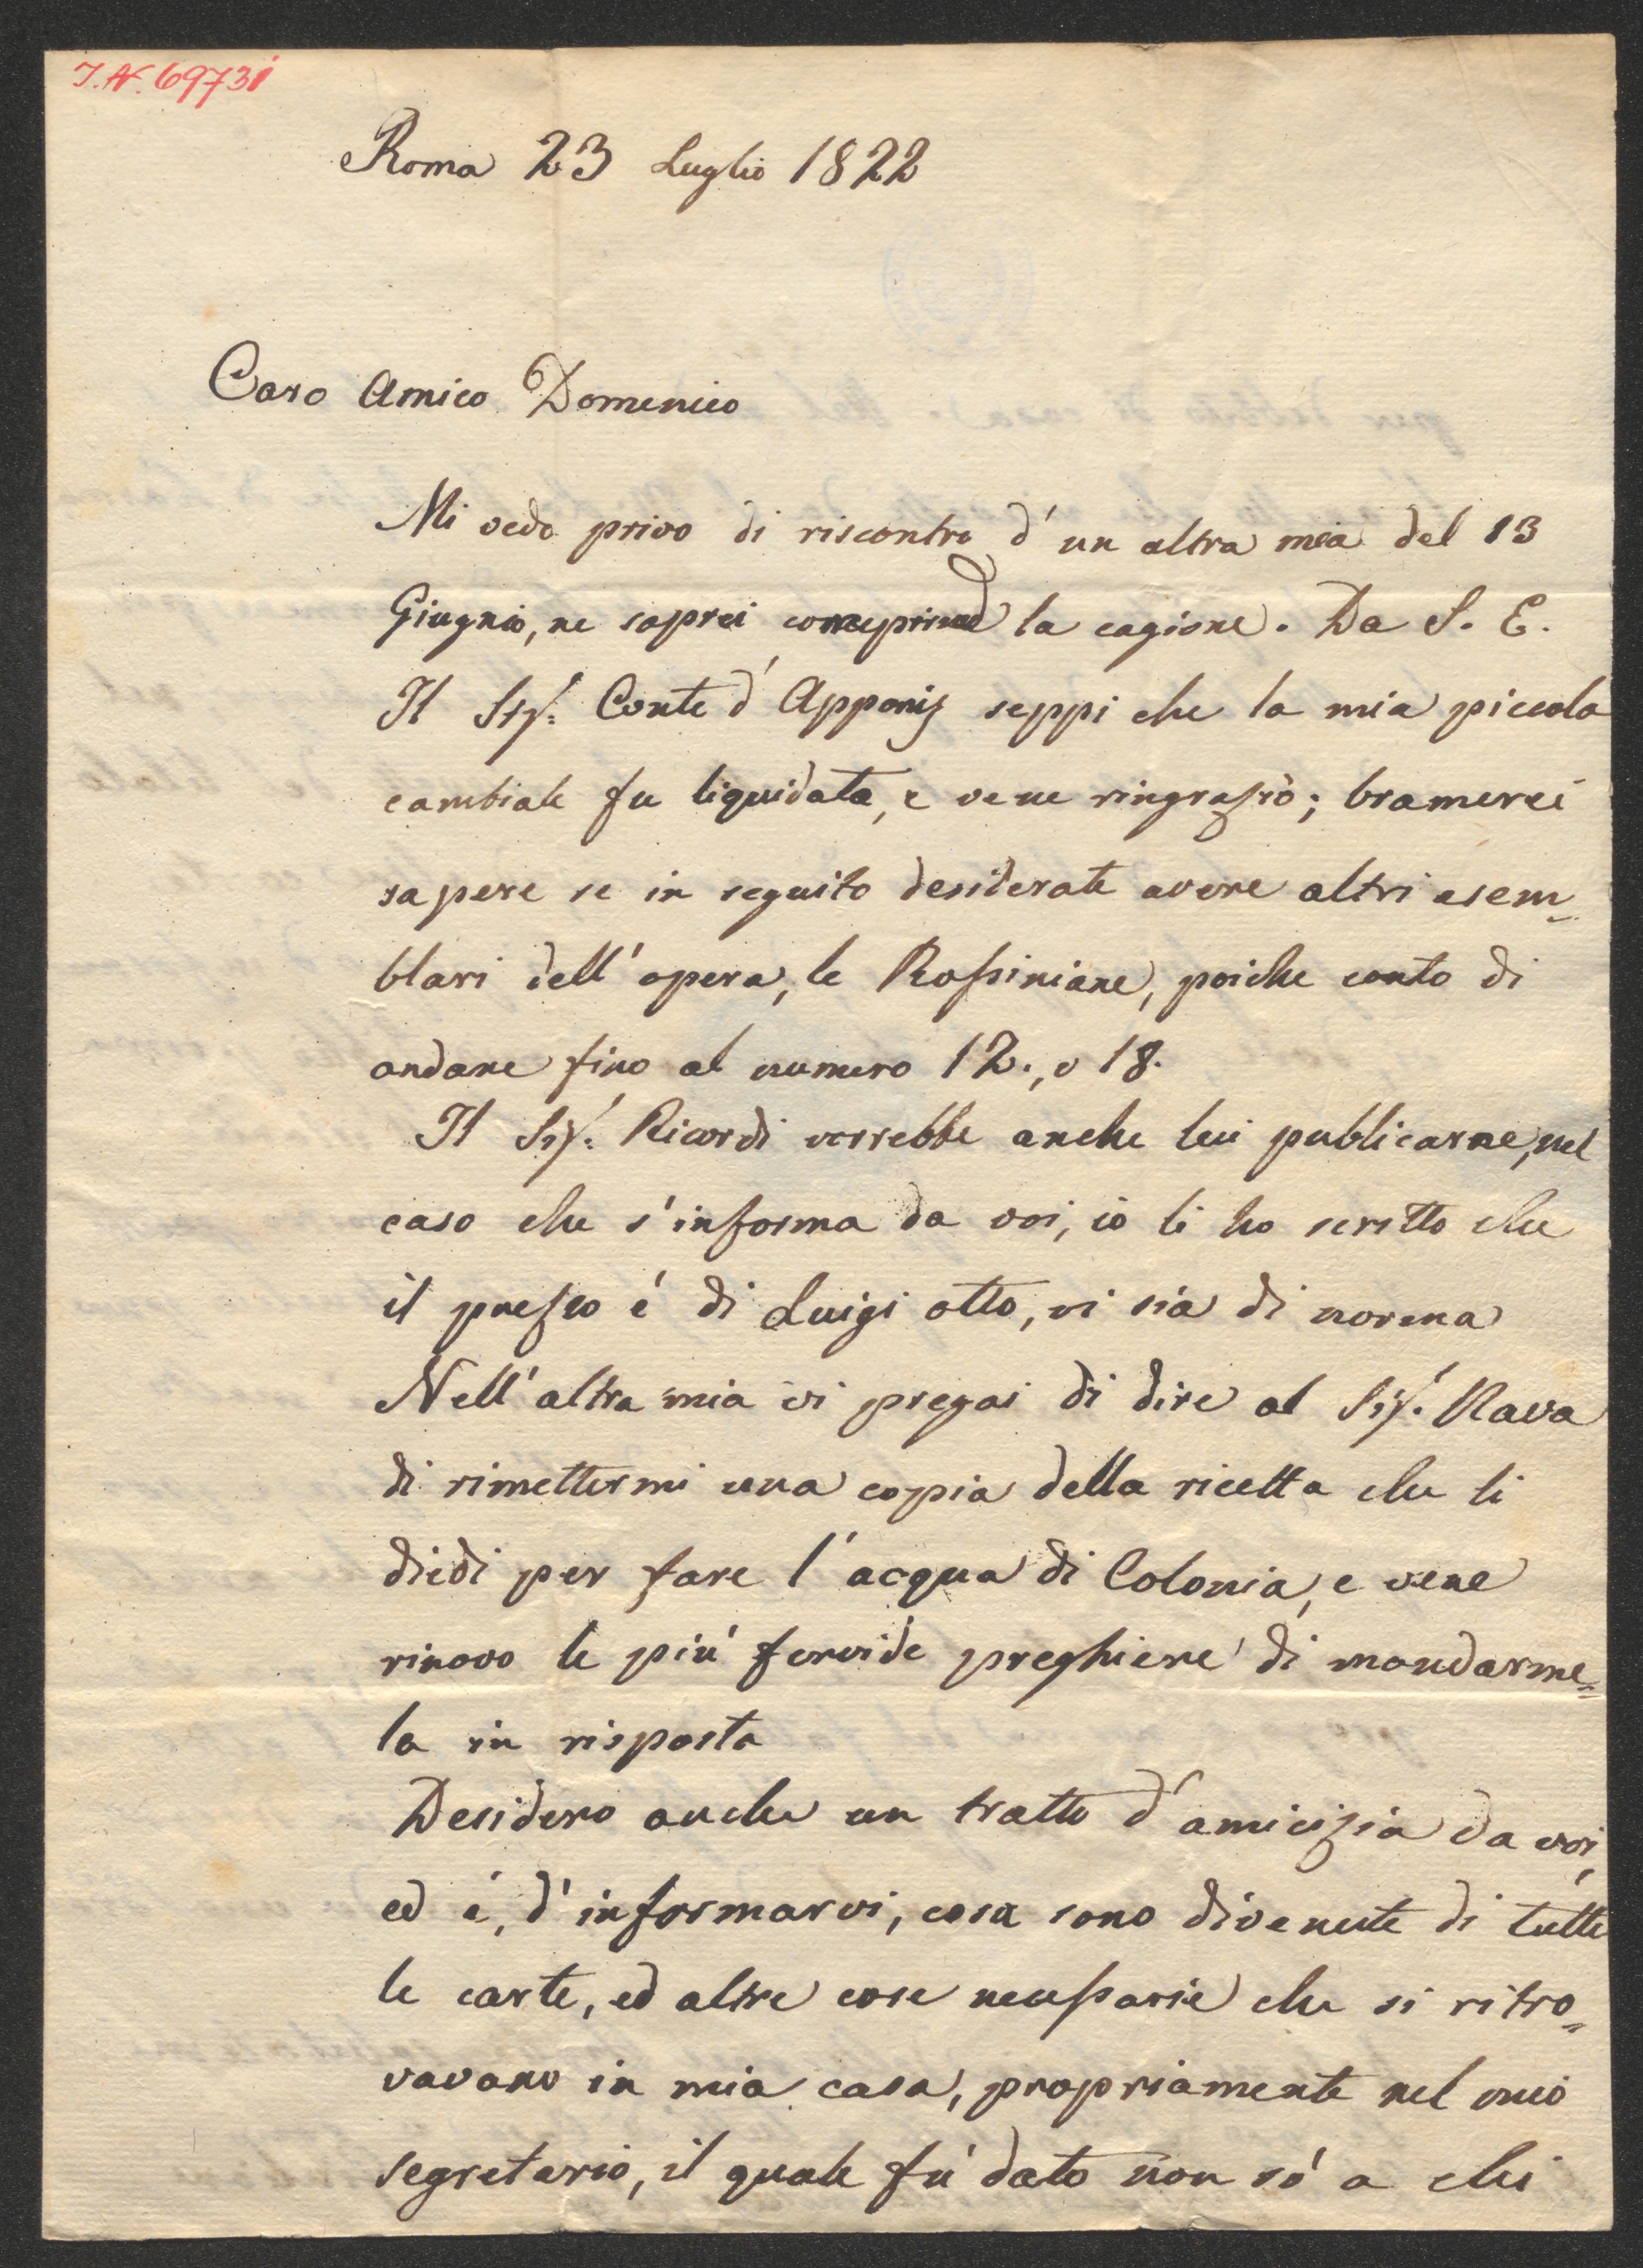 I.N. 69731
Roma 23 Luglio 1822
Caro Amico Domenico
Mi vedo privo di riscontro d'un altra mia del 13
Giugnio, ne saprei la cagione. Da S. E.
Il Sigr: Conte d'Apponij seppi che la mia piccola
cambiale fu liquidata, e vene ringrazio; bramerei
sapere se in seguito desiderate avere altri esem-
blari dell'opera, le Rossiniane, poiche conto di
andare fino al numero 12., o 18.
Il Sigr: Ricordi verrebbe anche lui publicarne, nel
caso che s'informa da voi, io li ho scritto che
il prezzo é di Luigi otto, vi sia di norma
Nell'altra mia vi pregai di dire al Sigr. Rava
di rimettermi una copia della ricetta che li
diedi per fare l'acqua di Colonia, e vene
rinovo le piú fervide preghiere di mandarme-
la in risposta
Desidero anche un tratto d'amicizia da voi,
ed é, d'informarvi, cosa sono divenute di tutte
le carte, ed altre cose necessarie che si ritro-
vavano in mia casa, propriamente nel mio
segretario, il quale fú dato non só a chi